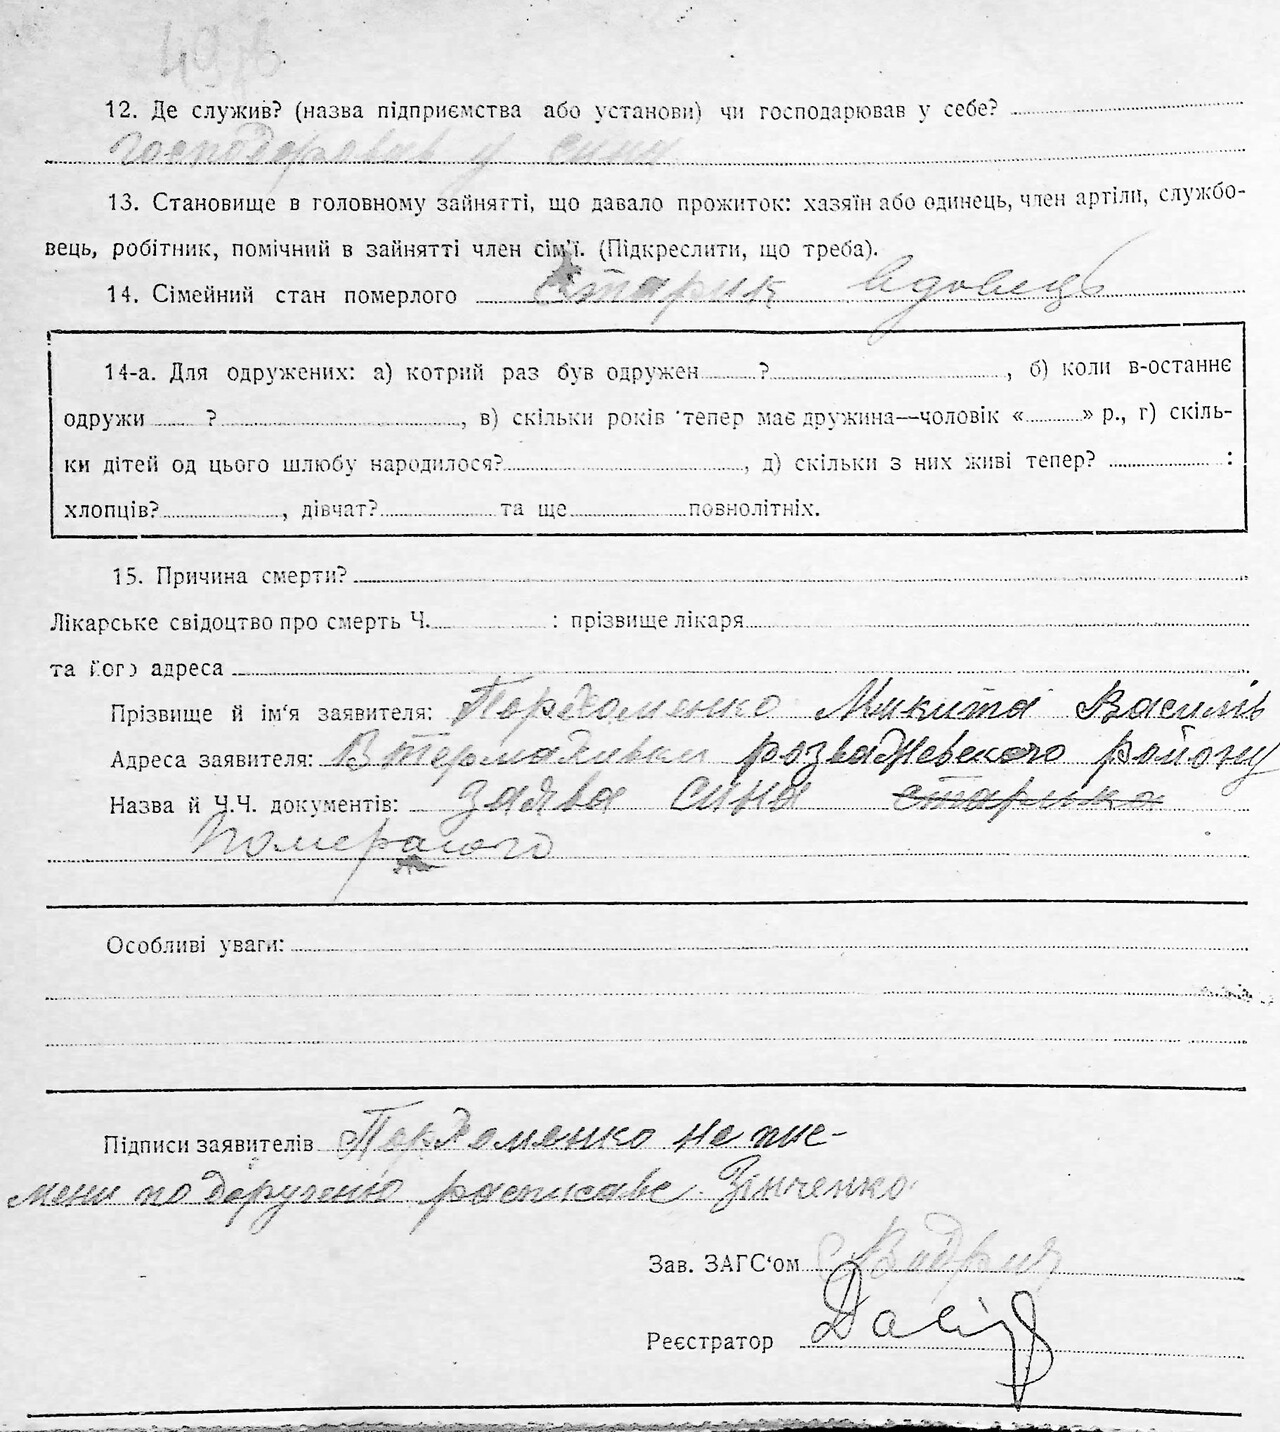 12. Де служив? (назва підприємства або установи) чи господарював у себе?
господоровав у сина
13. Становище в головному зайнятті, що давало прожиток: хазяїн або одинець, член артіли, службо-
вець, робітник, помічний в зайнятті член сім'ї. (Підкреслити, що треба).
14. Сімейний стан померлого старик вдовець
14-а. Для одружених: а) котрий раз був одружен ? , б) коли в-останнє
одружи ? , в) скільки років тепер має дружина—чоловік « » р., г) скіль-
ки дітей од цього шлюбу народилося? , д) скільки з них живі тепер? :
хлопців? , дівчат? та ще повнолітніх.
15. Причина смерти?
Лікарське свідоцтво про смерть Ч. : прізвище лікаря
та його адреса
Прізвище й ім'я заявителя: Пархоменко Микита Василів
Адреса заявителя: розважевского району
Назва й Ч.Ч. документів: заява сина старика
Померлого
Особливі уваги:
Підписи заявителів Пархоменко не пис-
мени по доручению расписавс Зінченко
Зав. ЗАГС'ом
Реєстратор